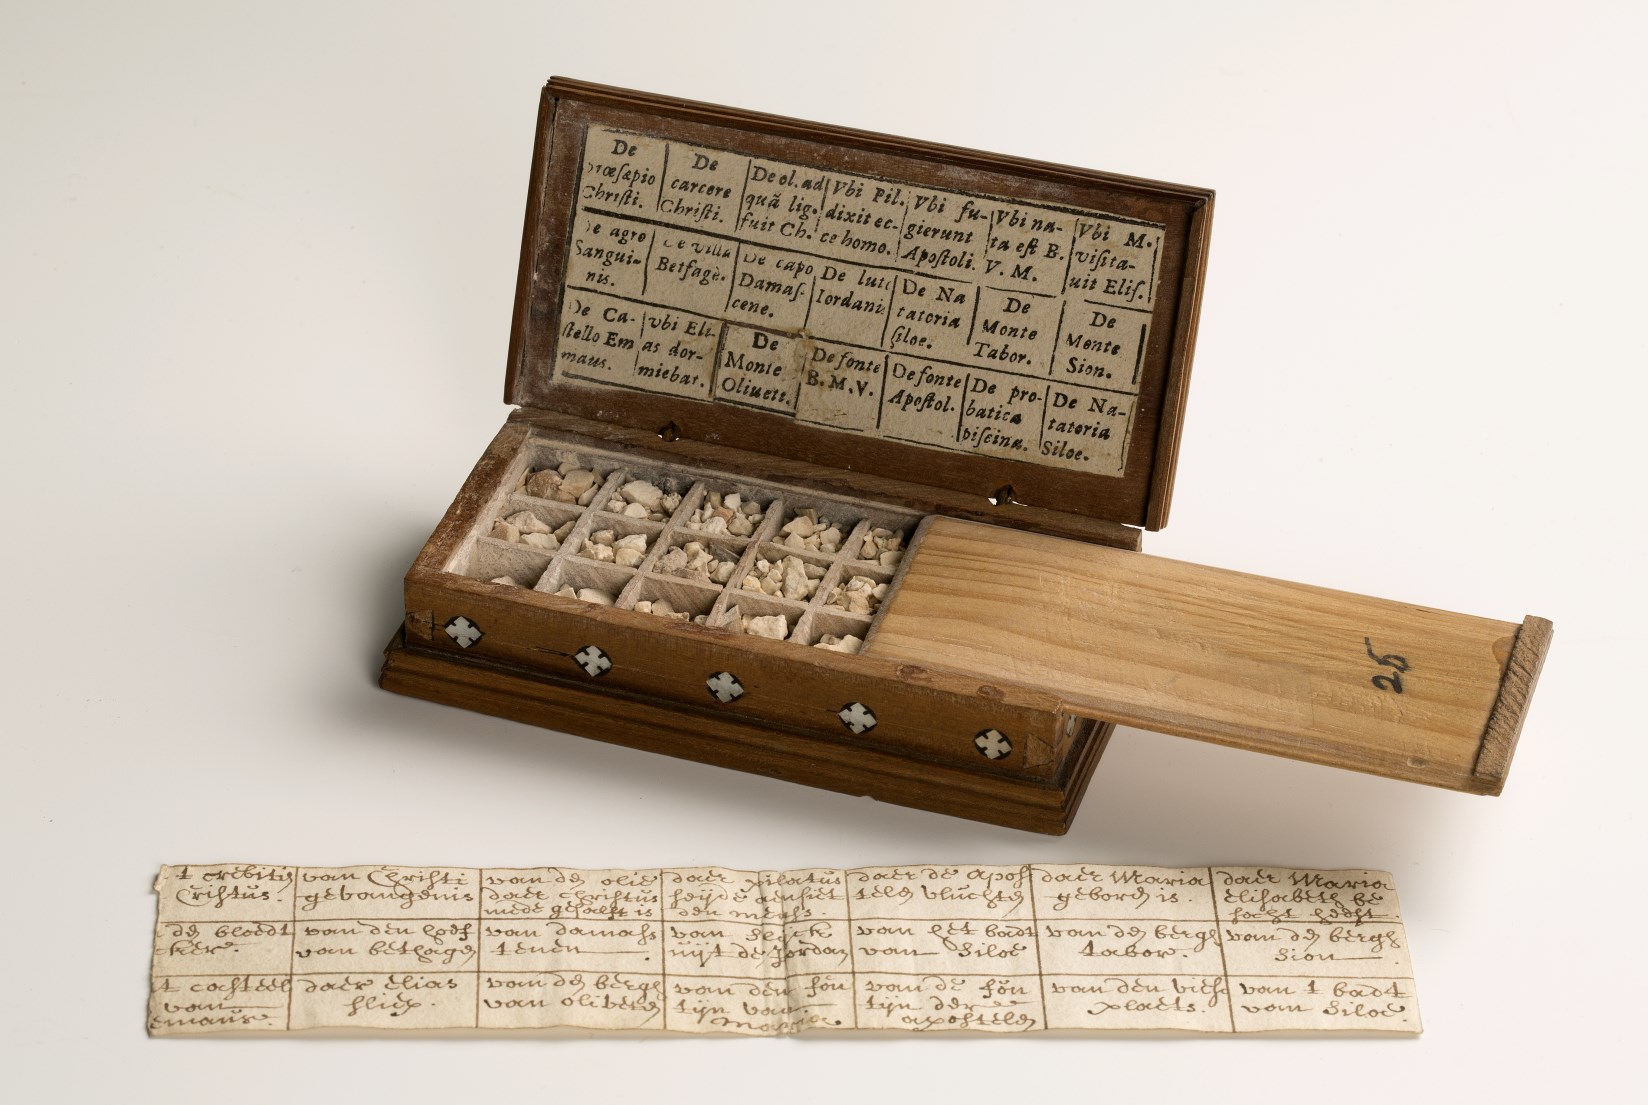 De
præsæpio
Christi.
De
carcere
Christi.
De ol. ad
quã lig.
fuit Ch.
Vbi Pil.
dixit ec-
ce homo.
Vbi fu-
gierunt
Apostoli.
Vbi na-
ta est B.
V. M.
Vbi M.
visita-
uit Elis.
De agro
Sangui-
nis.
De villa
Betfage.
De capo
Damas-
cene.
De luto
Iordanis
De Na
tatoria
siloe.
De
Monte
Tabor.
De
Monte
Sion.
De Ca-
stello Em
maus.
vbi Eli-
as dor-
miebat.
De
Monte
Oliueti.
De fonte
B. M. V.
De fonte
Apostol.
De pro-
batica
piscina.
De Na-
tatoria
Siloe.
25
t crebitij
Cristus.
van Christi
gevangenis
van den olie
daer Christus
mede gesalft is
daer pilatus
seijde aensiet
den mensch.
daer de apos
telen vluchten
daer Maria
geboren is.
daer Maria
elisabeth be
socht hedht.
den bloedt
ker.
van den hoef
van bethagen
van damass
tenen
van slijck
uijt de Jordan
van het badt
van Siloe
van den bergh
tabor.
van den bergh
Sion
t casteel
van
emaus.
daer elias
sliep.
van den bergh
van oliveten
van den fon
tijn van
Marie
van de fon
tijn der
apostelen
van den visch
plaets.
van t badt
van Siloe.